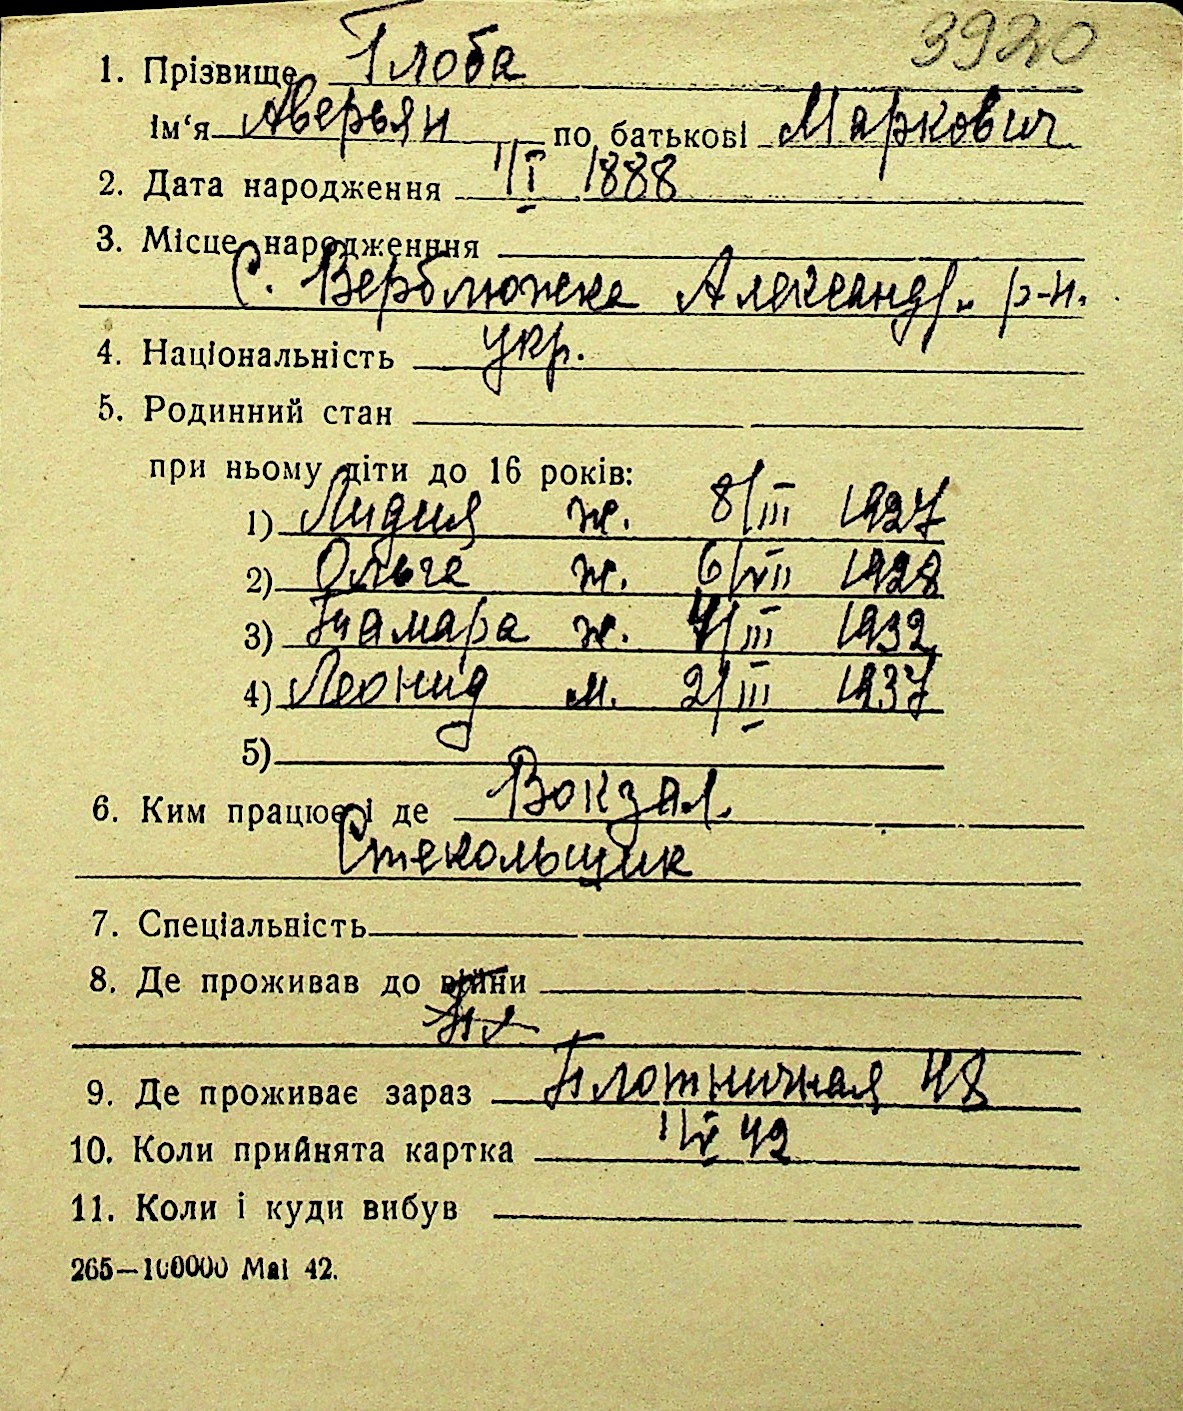 3920
1. Прізвище Глоба
Ім‘я Аверьян по батькові Маркович
2. Дата народження 1/I 1888
3. Місце народженння
С. Верблюжка Александр. р-н.
4. Національність укр.
5. Родинний стан
при ньому діти до 16 років:
1) Лидия ж. 8/III 1927
2) Ольга ж. 6/VII 1928
3) Тамара ж. 4/III 1932
4) Леонид м. 2/III 1937
5)
6. Ким працює і де Вокзал.
Стекольщик
7. Спеціальність
8. Де проживав до війни
9. Де проживає зараз Плотничная 48
10. Коли прийнята картка 1/V 42
11. Коли і куди вибув
265—100000 Маі 42.